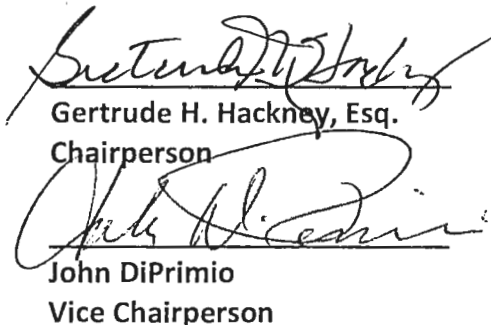 Gertrude H. Hackney
Gertrude H. Hackney, Esq.
Chairperson
John DiPrimio
John DiPrimio
Vice Chairperson